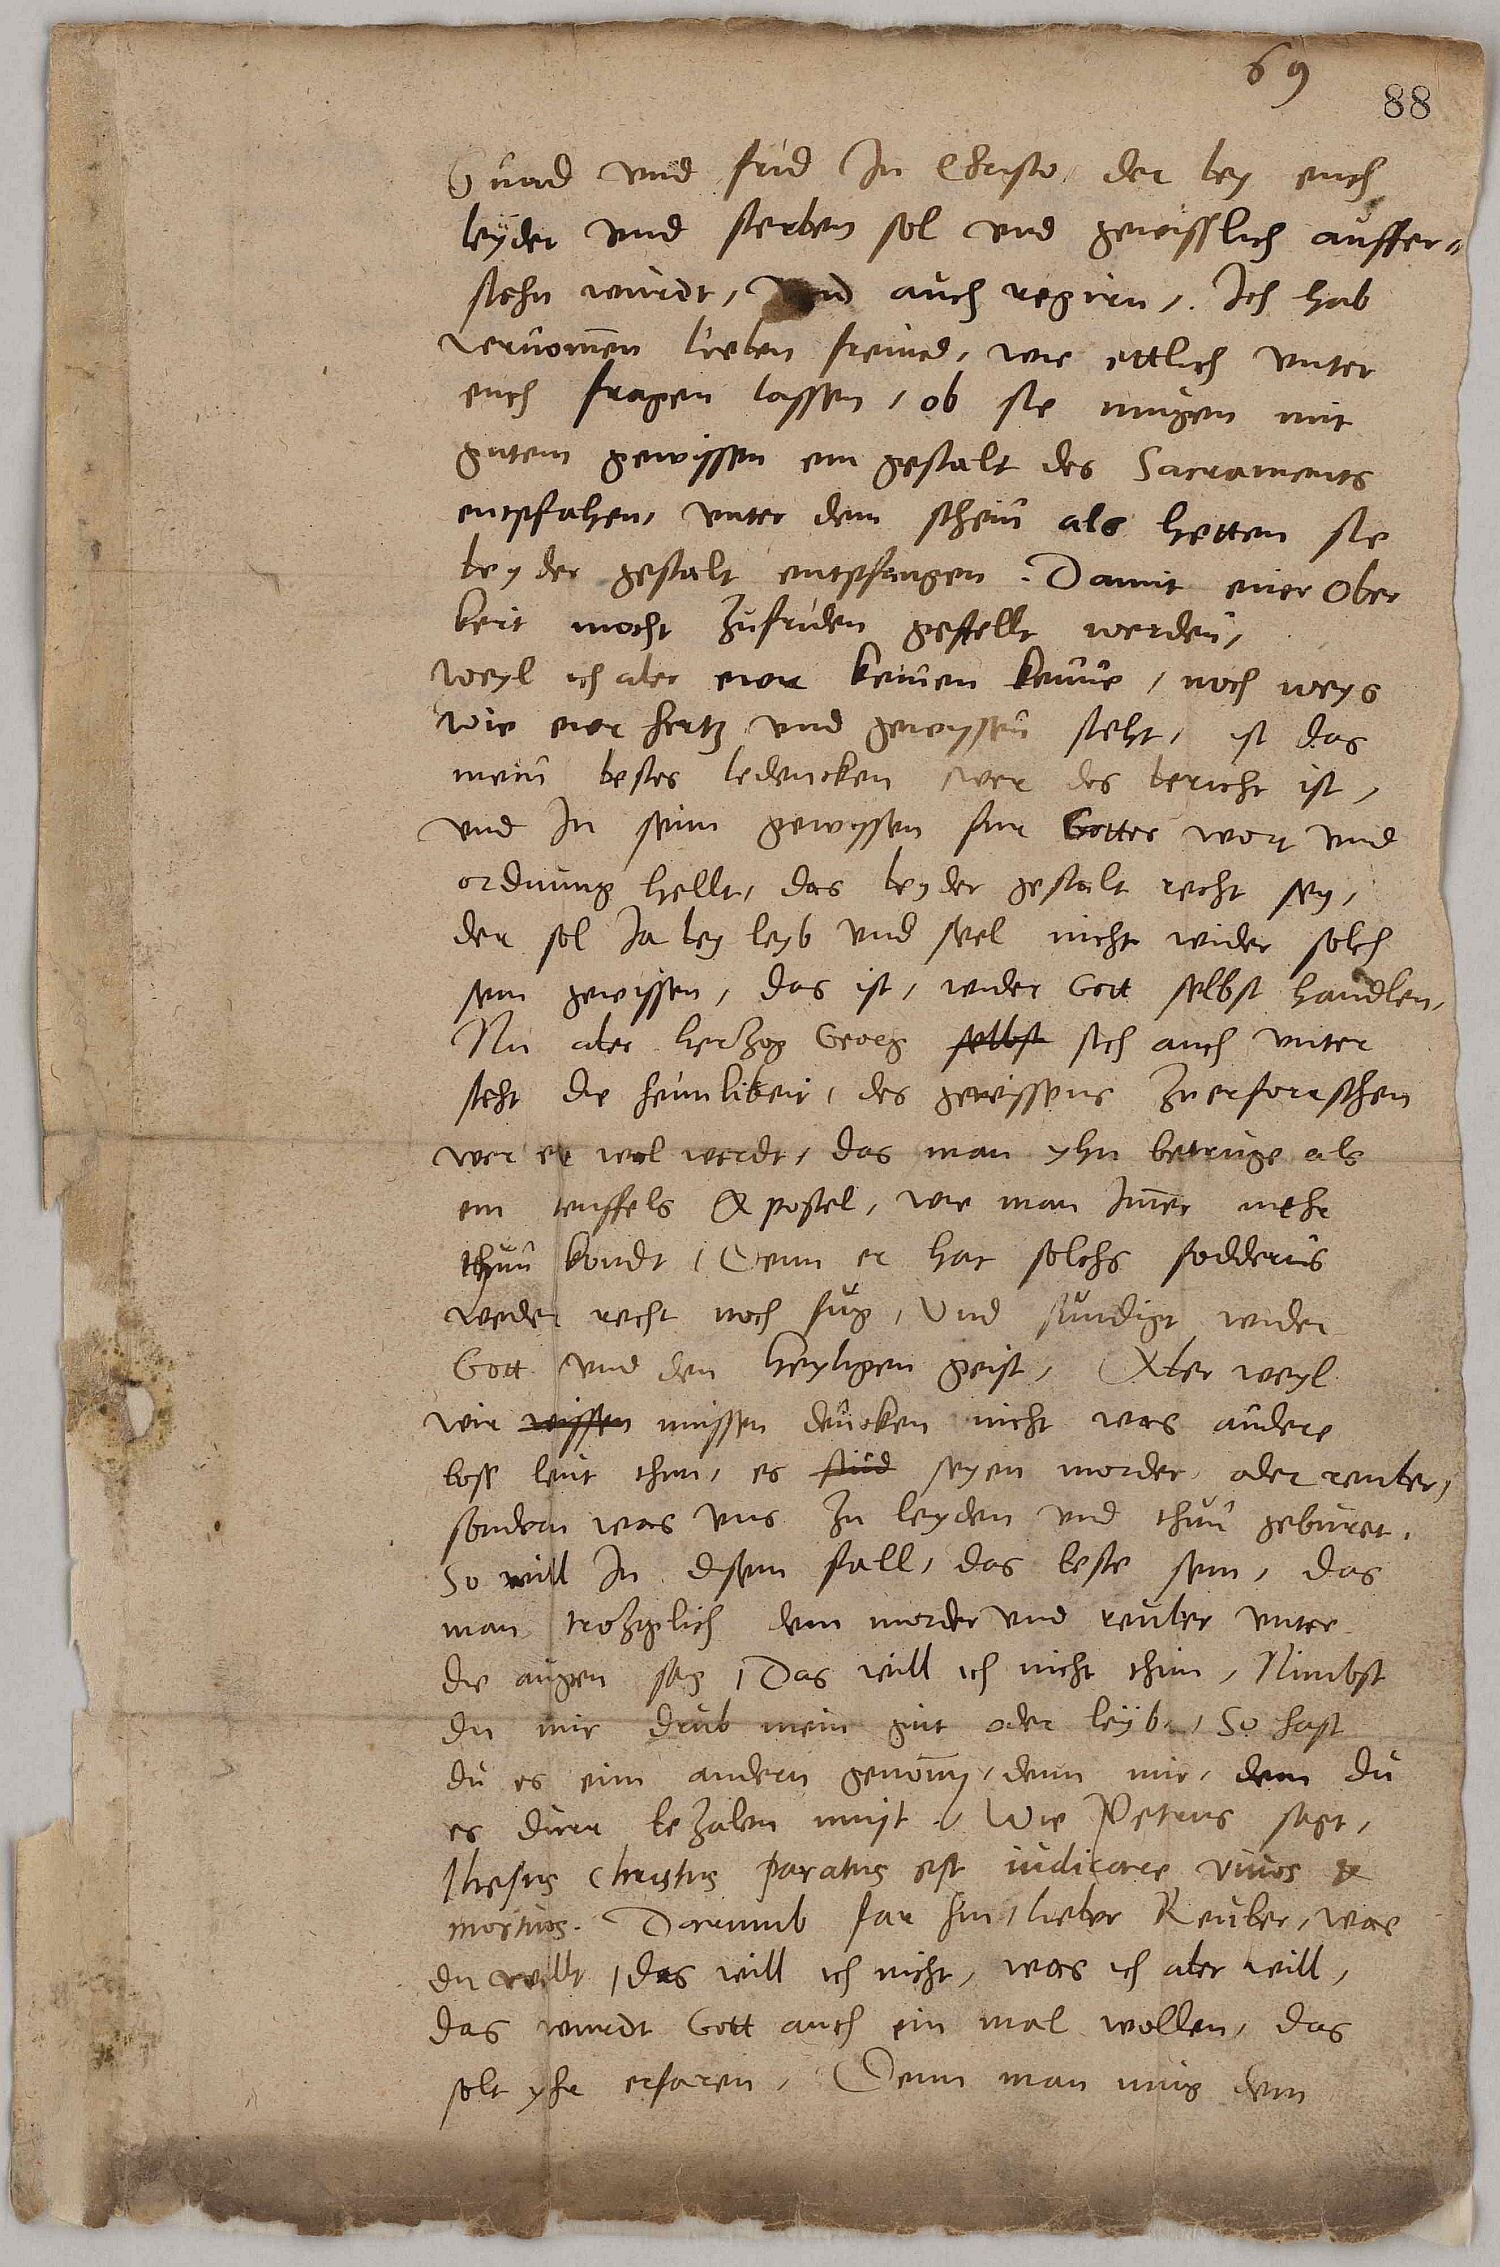 69
88
Gnad vnd frid In Christo, der bey euch
leyder vnd sterben sol vnd gewisslich auffer-
stehn wurdt, vnd auch regirn, Ich hab
vernomen lieben freund, wie ettlich vnter
euch fragen lassen, ob sie mugen mit
gutem gewissen ein gestalt des Sacraments
entpfahen, vnter dem schein als hetten sie
beyder gestalt entpfangen. Damit ewer Ober
keit mocht zufriden gestellt werden,
weyl ich aber ewr keinen kenne, noch weys
wie ewr hertz vnd gewyssen steht, ist das
mein bestes bedencken, wer des bericht ist,
vnd In seim gewyssen fur Gottes wort vnd
ordnung hellt, das beyder gestalt recht sey,
der sol Ja bey leyb vnd seel nicht wider solch
sein gewissen, das ist, wider Gott selbst handlen,
Nu aber hertzog Georg selbst sich auch vnter
steht die heimlikeit, des gewissens zu erforschen
wer er wol werdt, das man yhn betruge als
ein teuffels Apostel, wie man Imer mehr
thun kondt, Denn er hat solchs fodderns
weder recht noch fug, Vnd sundigt wider
Gott vnd den heyligen geist, Aber weyl
wir wissen mussen dencken nicht was andere
bose leut thun, es sind seyen morder, oder reuber,
sondern was vns zu leyden vnd thun geburet.
So will In disem fall, das beste sein, das
man trotzlich dem morder vnd reuber vnter
die augen sag, Das will ich nicht thun, Nimbst
du mir drub mein gut oder leyb, So hast
du es eim andern genomen, denn mir, dem du
es durr bezalen must. Wie Petrus sagt,
Ihesus Christus paratus est iudicare viuos &
mortuos. Darumb far hin, lieber Reuber, was
du willt, das will ich nicht, was ich aber will,
das wurdt Gott auch ein mal wollen, das
solt yhr erfaren, Denn man mus dem